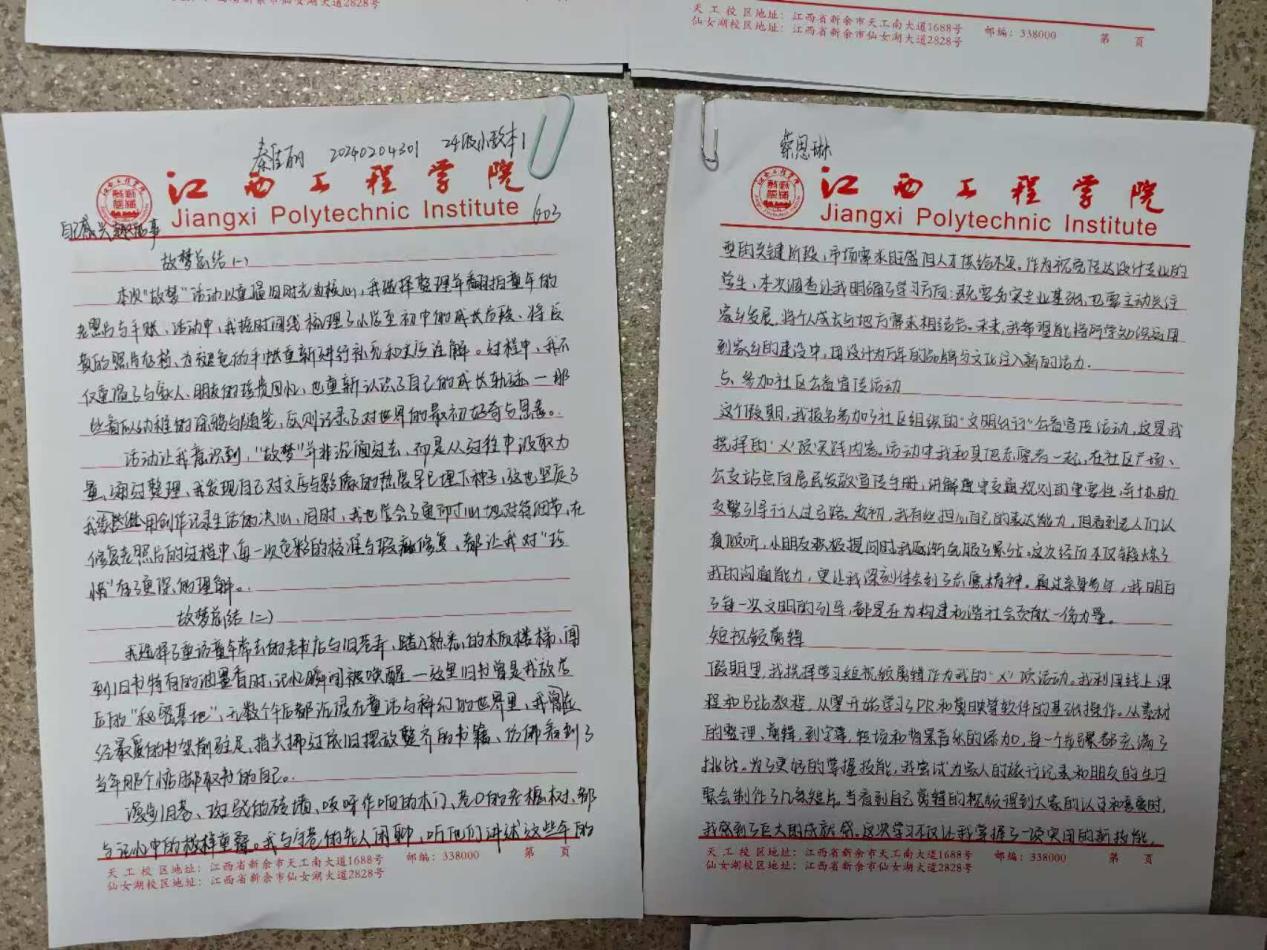 仙女湖校区地址：江西省新余市仙女湖大道2828号
天工校区地址：江西省新余市天工南大道1688号 邮编：338000 第 页
仙女湖校区地址：江西省新余市仙女湖大道2828号
秦佳丽 20240204301 24级小教本1
江西工程学院
Jiangxi Polytechnic Institute
1403
自己感兴趣的事
故梦总结(一)
本次"故梦"活动以重温旧时光为核心，我选择整理并翻拍童年的
老照片与手账。活动中，我按时间线梳理了小学至初中的成长片段，将反
黄的照片存档，为褪色的手帐重新进行补充和文字注解。过程中，我不
仅重温了与家人、朋友的珍贵回忆，也重新认识了自己的成长轨迹—那
些看似幼稚的涂鸦与随笔，反则记录了对世界的最初好奇与思考。
活动让我意识到，"故梦"并非沉湎过去，而是从过往中汲取力
量。通过整理，我发现自己对文字与影像的热爱早已埋下种子，这也坚定了
我用创作记录生活的决心，同时，我也学会了更耐心地对待细节，在
修复老照片的过程中，每一次色彩的校准与瑕疵修复，都让我对"珍
惜"有了更深的理解。
故梦总结(二)
我选择了重访童年常去的老书店与旧巷弄，踏入熟悉的木质楼梯，闻
到旧书特有的油墨香时，记忆瞬间被唤醒—这里旧书曾是我放学
后的"秘密基地"，无数个午后都沉浸在童话与科幻的世界里，我曾在
经最爱的书架前驻足，指尖拂过依旧摆放整齐的书籍，仿佛看到了
当年那个踮脚取书的自己。
漫步旧巷，斑驳的砖墙、吱呀作响的木门、巷口的老槐树，都
与记忆中的模样重叠。我与闲老的老人闲聊，听他们讲述这些年的
天工校区地址：江西省新余市天工南大道1688号 邮编：338000 第 页
仙女湖校区地址：江西省新余市仙女湖大道2828号
蔡恩琳
江西工程学院
Jiangxi Polytechnic Institute
型的关键阶段，市场需求旺盛但人才供给不足。作为视觉传达设计专业的
学生，本次调查让我明确了学习方向：既需夯实专业基础，也要主动关注
家乡发展，将个人成长与地方需求相结合。未来，我希望能将所学知识运用
到家乡的建设中，用设计为万年的品牌与文化注入新的活力。
与、参加社区公益宣传活动
这个假期，我报名参加了社区组织的"文明出行"公益宣传活动，这是我
选择的"X"项实践内容。活动中我和其他志愿者一起，在社区广场、
公交站点向居民发放宣传手册，讲解遵守交通规则的重要性，并协助
交警引导行人过马路。起初，我有些担心自己的表达能力，但看到老人们认
真倾听，小朋友积极提问时我逐渐克服了紧张。这次经历不仅锻炼了
我的沟通能力，更让我深刻体会到了志愿精神。通过亲身参与，我明白
了每一次文明的引导，都是在为构建和谐社会贡献一份力量。
短视频剪辑
假期里，我选择学习短视频剪辑作为我的"X"项活动。我利用线上课
程和B站教程，从零开始学习了PR和剪映等软件的基础操作。从素材
的整理、剪辑，到字幕，转场和背景音乐的添加，每一个步骤都充满了
挑战。为了更好的掌握技能，我尝试为家人的旅行记录和朋友的生日
聚会制作了几条短片。当看到自己剪辑的视频得到大家的认可和喜爱时，
我感到了巨大的成就感。这次学习不仅让我掌握了一项实用的新技能，
天工校区地址：江西省新余市天工南大道1688号 邮编：338000 第 页
仙女湖校区地址：江西省新余市仙女湖大道2828号